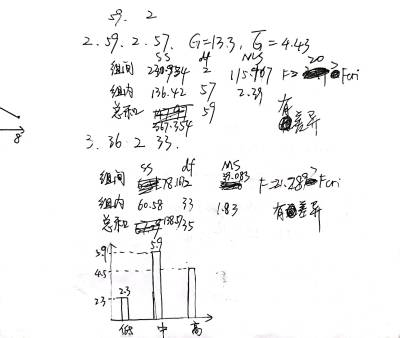 59. 2
2. 59. 2. 57. G=13.3, G̅=4.43
SS df MS
组间 230.934 2 115.967 F> Fcri
组内 136.42 57 2.39 有
总和 367.354 59 差异
3. 36 2 33.
SS df MS
组间 78.16 2 39.083 F=21.289>Fcri
组内 60.58 33 1.83 有差异
总和 35
8
5.9
4.5
2.3
2.3 5.9
低 中 高